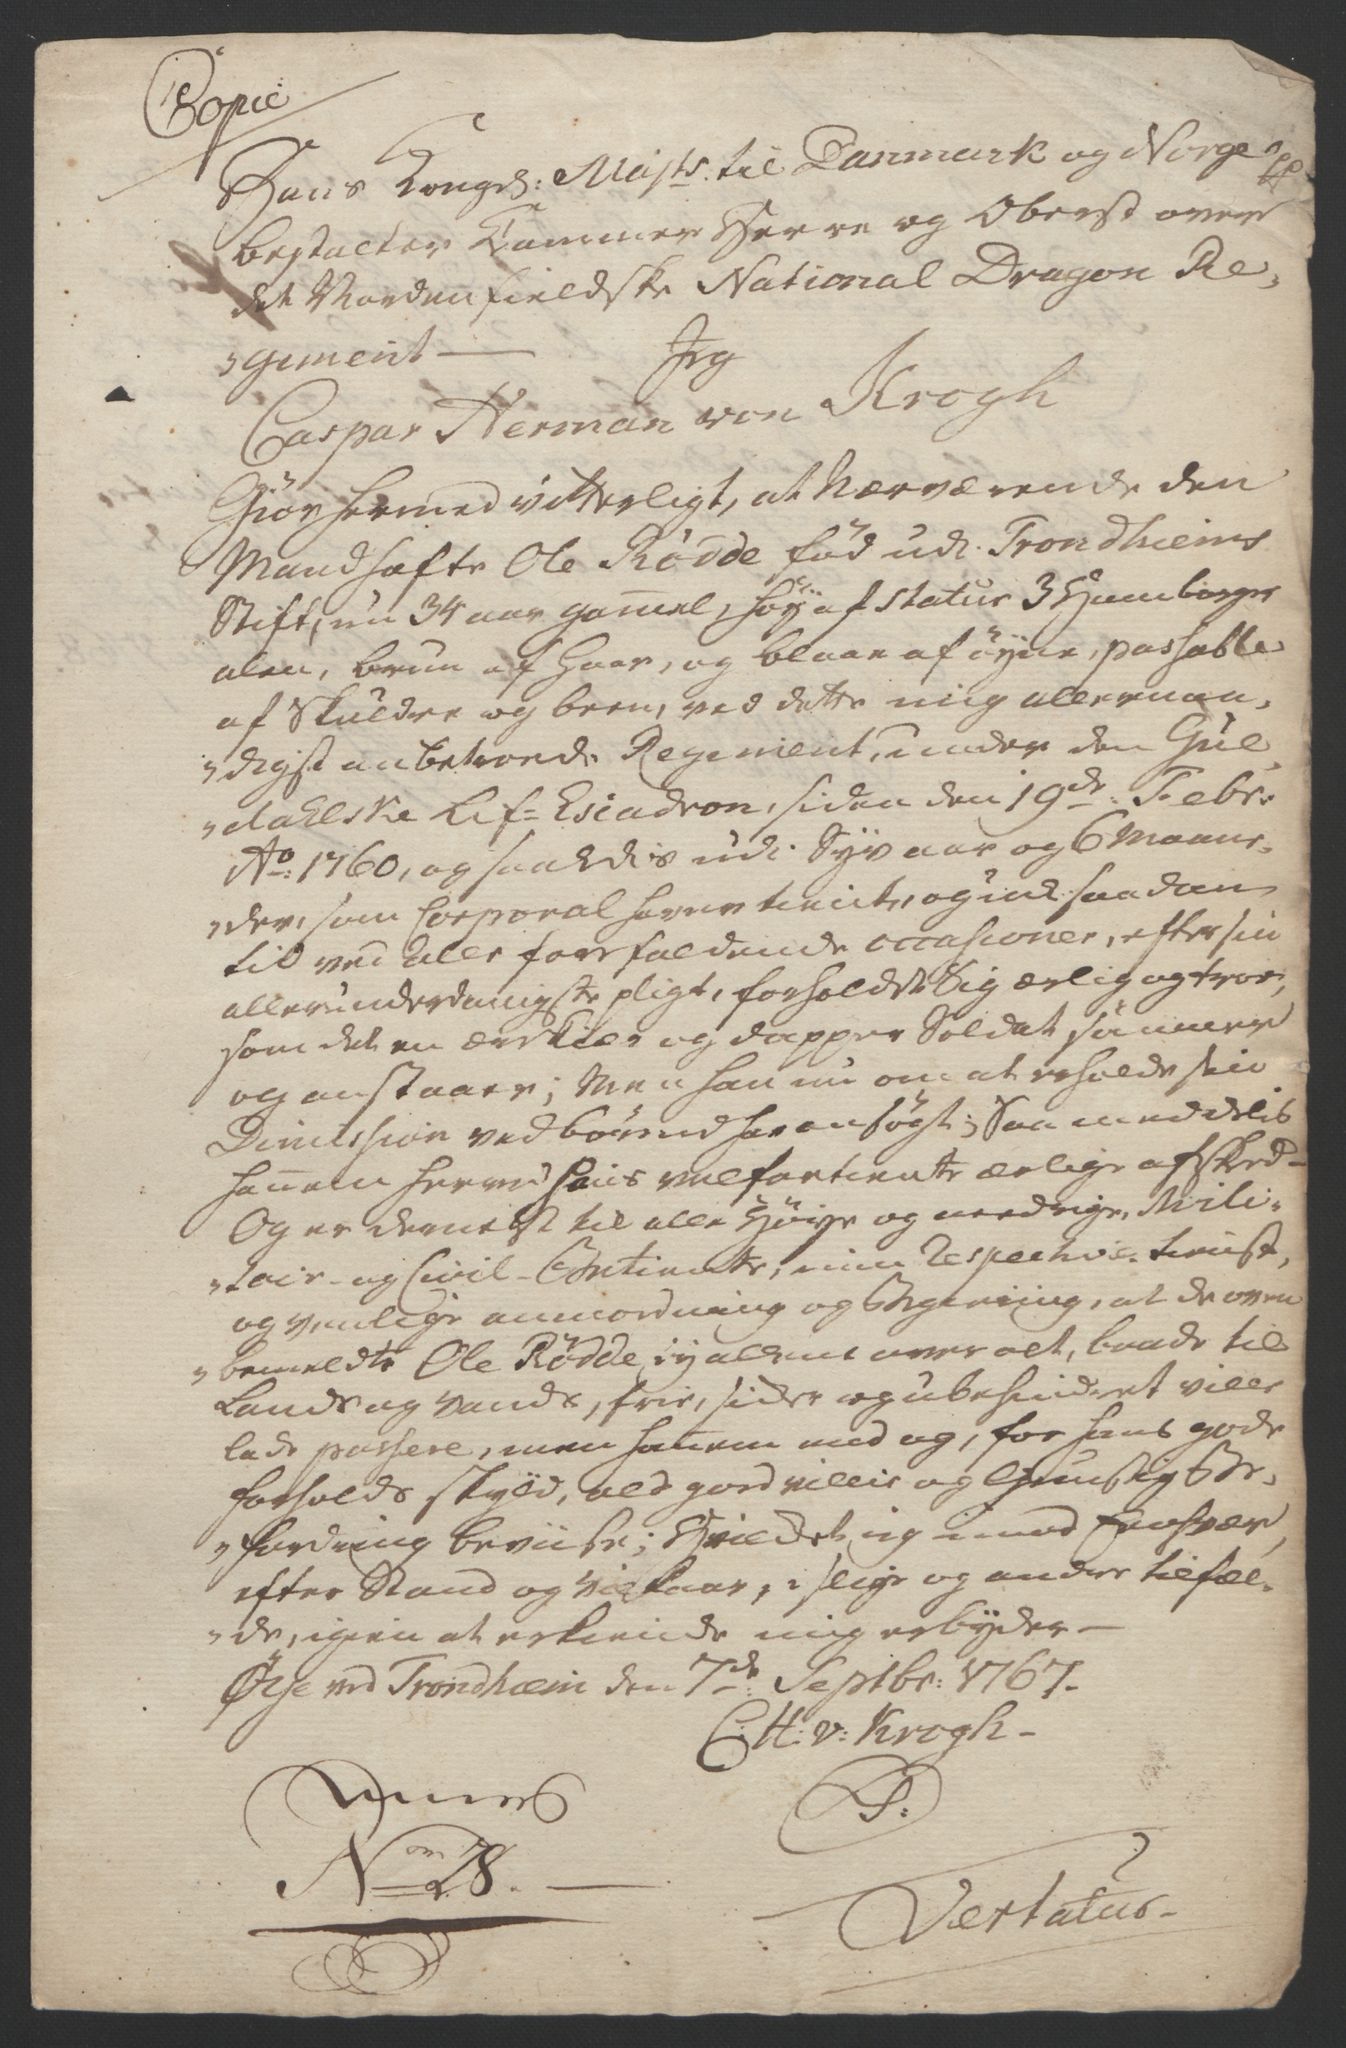 Copie
Hans Kongel: Maj:ts til Danmark og Norge pp
bestalter Kammer Herre og Oberst over
det Nordenfieldske National Dragon Re,
,,giment — Jeg
Caspar Herman von Krogh
Giør hermed vitterligt, at Nærværende den
Mandhafte Ole Rödde fød udi Trondhiems
Stift, nu 34 aar gamel, høy af Statur 3 Hamborger
alen, brun af Haar, og blaae af øyne, passable
af Skuldre og been, ved dette mig allernaa,
,,digst anbetroede Regiment, under den Gul,
,,dahlske Lif=Escadron, siden den 19de Febr:
Ao: 1760, og saaledes udi Syv aar og 6 Maane,
,,der, som Corporal haver tient, og ind saadan
tid ved alle forefaldende occasioner, efter sin
allerunderdanigste pligt, forholdet Sig ærlig og troe,
som det en ærekiær og dapper Soldat sömmer
og anstaaer; Men han nu om at erholde sin
Dimission ved börmd har ansögt; Saa meddelis
hanem herved hans velfortiente ærlige afsked —
Og er dernest til alle Høÿe og needrige, Mili,
,,tair- og Civil-Betiente, min Respective tienst,
og venlige anmodning og Begiering, at de oven
,,bemeldte Ole Rödde, ey alleene over alt, baade til
Lands og Vands, frie, sicker og ubehindret ville
lade passere, men hanem end og, for hans gode
forholds skÿld, ald good villie og Gunstig Be,
,,fordring beviise; Hvilket ieg imod Enhver,
efter Stand og vilkaar, i slige og andre tilfæl,
,,de, igien at erkiende mig erbÿder —
Øꝛe ved Trondhiem den 7de: Septbr: 1767.
C: H: v: Krogh —
No 28.
Vertatur —